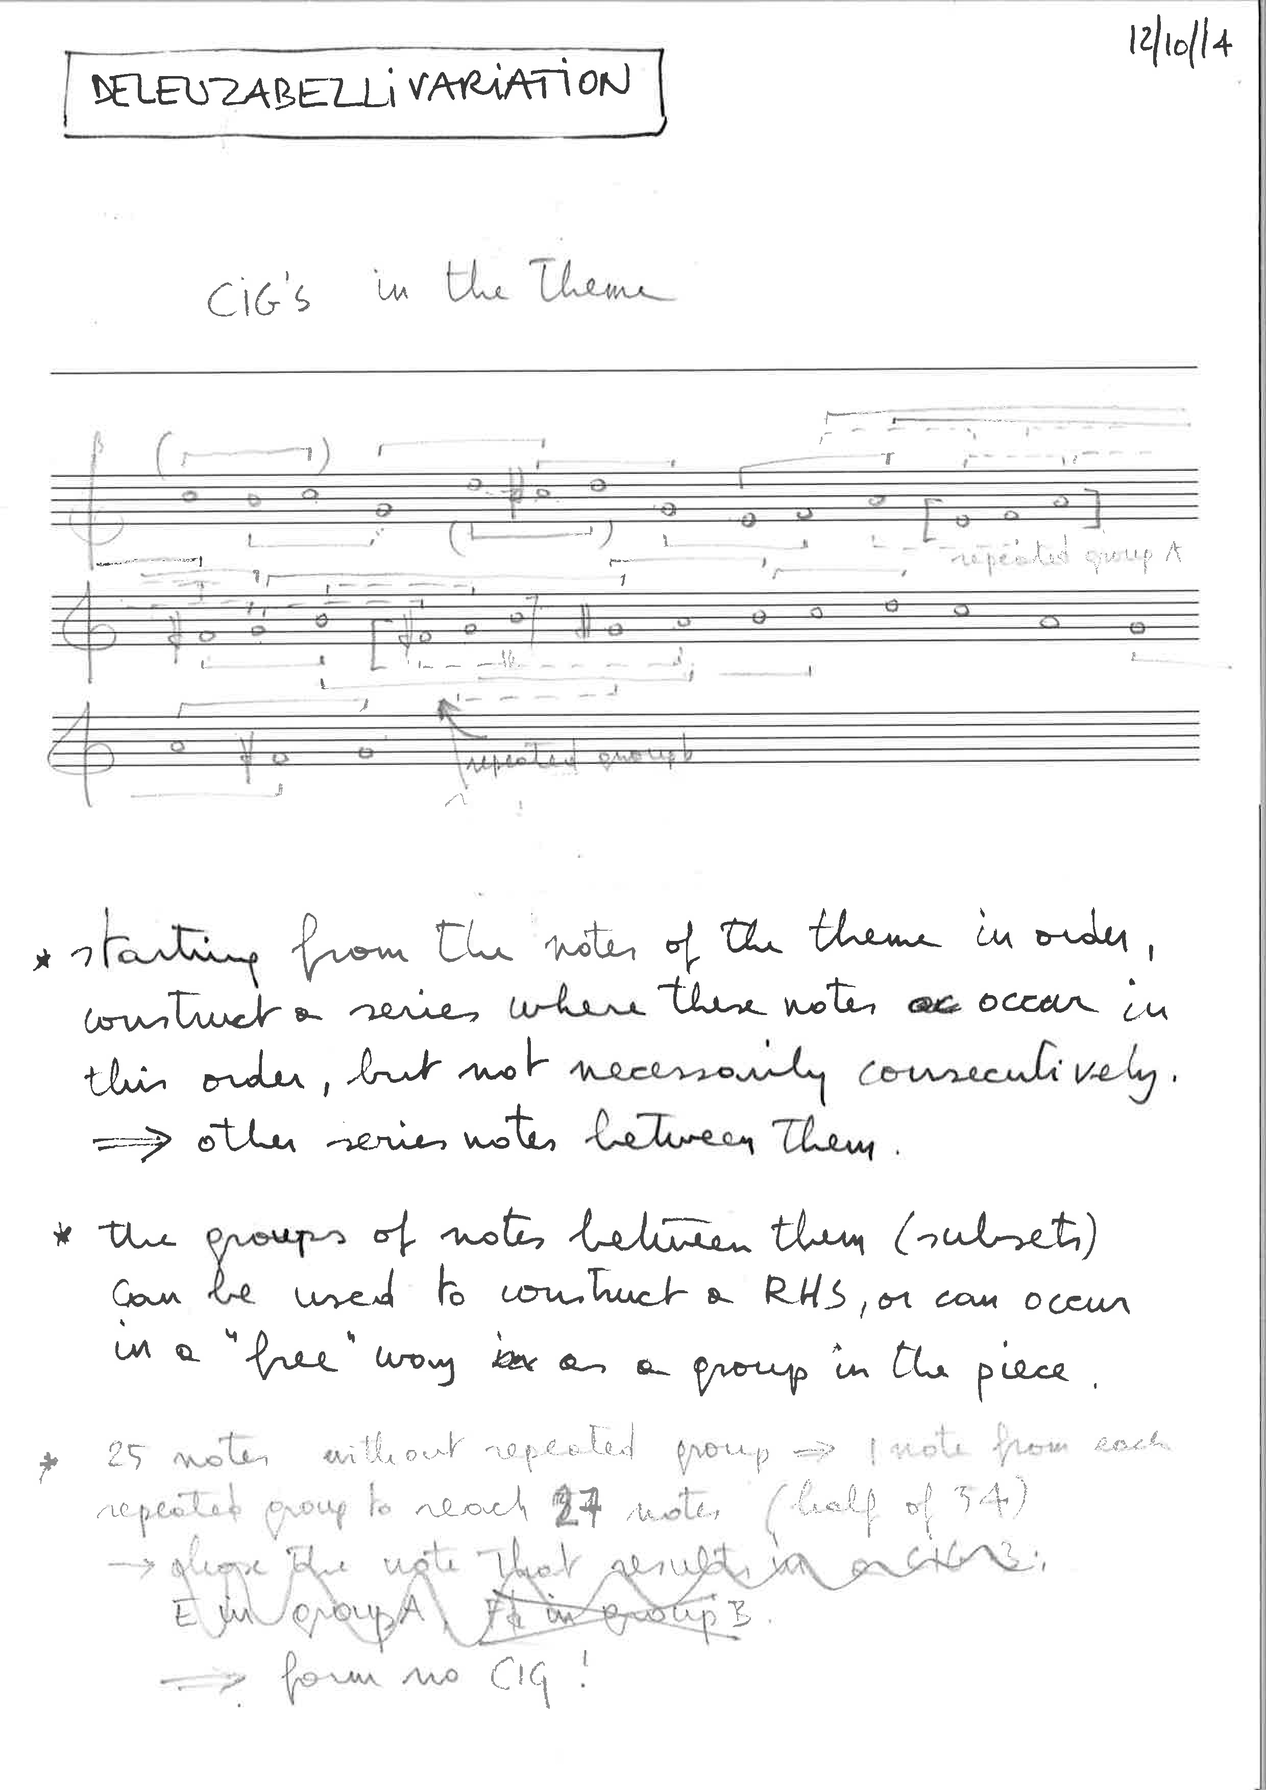 12/10/14
DELEUZABELLI VARIATION
CIG's in the Theme
( )
( )
[ ]
repeated group A
[ ]
repeated group b
* starting from the notes of the theme in order,
construct a series where these notes oc occur in
this order, but not necessarily consecutively.
⇒ other series notes between them.
* the groups of notes between them (subsets)
can be used to construct a RHS, or can occur
in a "free" way as a group in the piece.
* 25 notes without repeated group ⇒ 1 note from each
repeated group to reach 27 notes (half of 54)
→ the note that results in a CIG 3:
E in group A, in group B.
⇒ form no CIG!